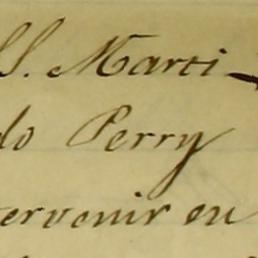 SS. Marti-
do Perry
tervenir en